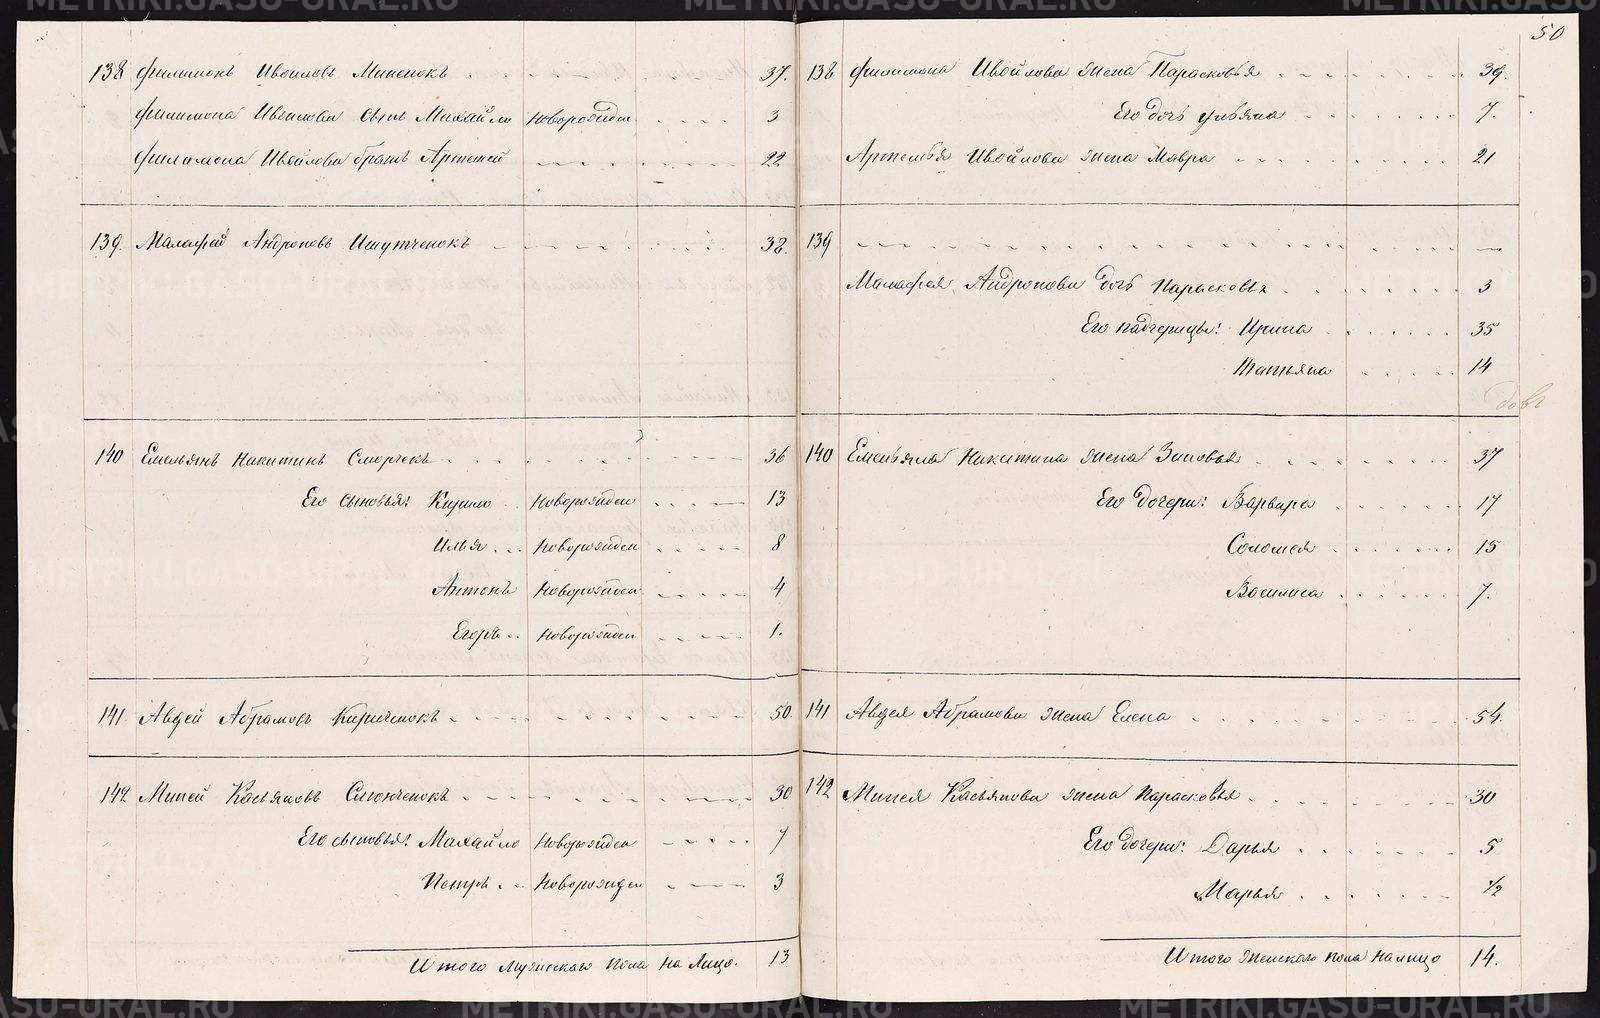 50
138 Филимонъ Ивойловъ Мипенокъ 37.
Филимона Ивойлова сынъ Михайло новорожден 3
Филимона Ивойлова братъ Артемей 22
139. Малафей Андроновъ Ишутченокъ 38.
140 Емельянъ Никитинъ Сморчекъ 36
Его сыновья: Кирило новорожден 13
Илья новорожден 8
Антонъ новорожден 4
Егоръ новорожден 1.
141 Авдей Абрамовъ Кириченокъ 50
142 Миней Касьяновъ 30
Его сыновья: Михайло новорожден 7
Петръ новорожден 3
Итого мужескаго пола на лицо. 13
138 Филимона Ивойлова жена Парасковья 39.
Его дочь Ульяна 7.
Артемья Ивойлова жена Мавра 21
139
Малафея Андронова дочь Парасковья 3
Его падчерицы: Ирина 35
Татьяна 14
140 Емельяна Никитина жена Зиновья 37
Его дочери: Варвара 17
Соломея 15
Василиса 7.
141 Авдея Абрамова жена Елена 54.
142 Минея Касьянова жена Парасковья 30
Его дочери: Дарья 5
Марья 1/2
Итого женскаго пола налицо 14.
METRIKI.GASO-URAL.RU